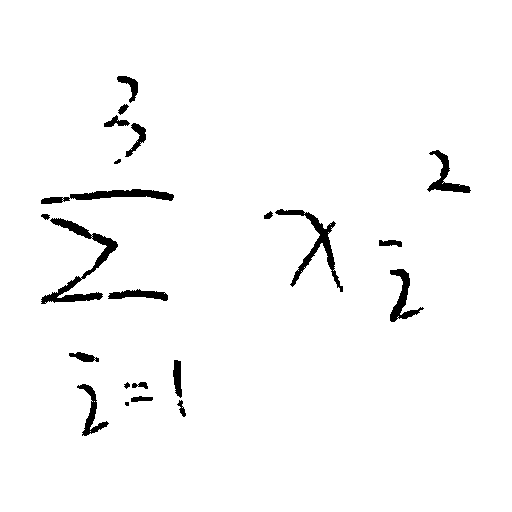 $\sum_{i=1}^{3} x_i^2$